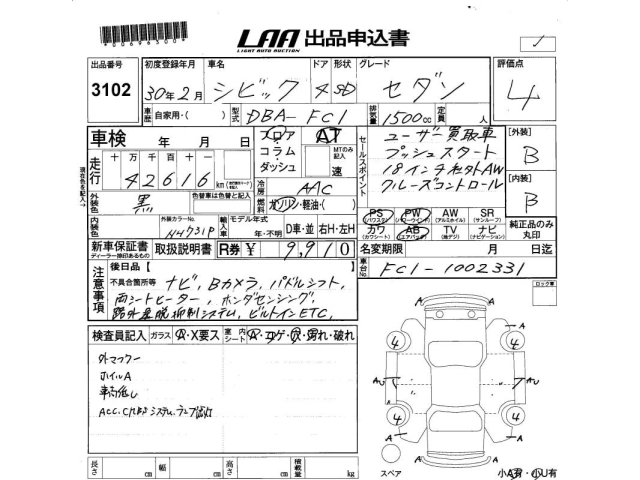 LAA 出品申込書
LIGHT AUTO AUCTION
出品番号 初度登録年月 車名 ドア 形状 グレード 評価点
3102 30年2月 シビック 4 SD セダン 4
車歴 自家用・( ) 型式 DBA-FC1 排気量 1500cc 定員 人
車検 年 月 日
フロア コラム・ダッシュ AT MTのみ記入 速
セールスポイント
ユーザー買取車
プッシュスタート
18インチ社外AW
クルーズコントロール
[外装] B
[内装] B
走行 十 万 千 百 十
42616 km
冷房 AAC
外装色 黒 色替車は色替と記入
燃料 ガソリン・軽油・( )
外装カラーNo. NH731P
輸入車 モデル年式 年・不明 D車・並 右H・左H
PS (パワステ) PW (パワーウインド) AW (アルミホイル) SR (サンルーフ)
カワ (カワシート) AB (エアバック) TV (地デジ) ナビ (ナビゲーション)
純正品のみ丸印
新車保証書 ディーラー捺印あるもの 取扱説明書 R券 ¥ 9,910
名変期限 月 日迄
車台No. FC1-1002331
ロック車
注意事項
後日品 [
不具合箇所等 ナビ, Bカメラ, パドルシフト,
両シートヒーター, ホンダセンシング,
路外逸脱抑制システム, ビルトインETC,
検査員記入 ガラス A・X要ス 室内シート A・コゲ・穴・汚れ・破れ
外マフラー
ホイルA
車高低し
A A
4 4
AU AU
4 4
A A
スペア 小A有・小U有
長さ cm 幅 cm 高さ cm 積載量 kg